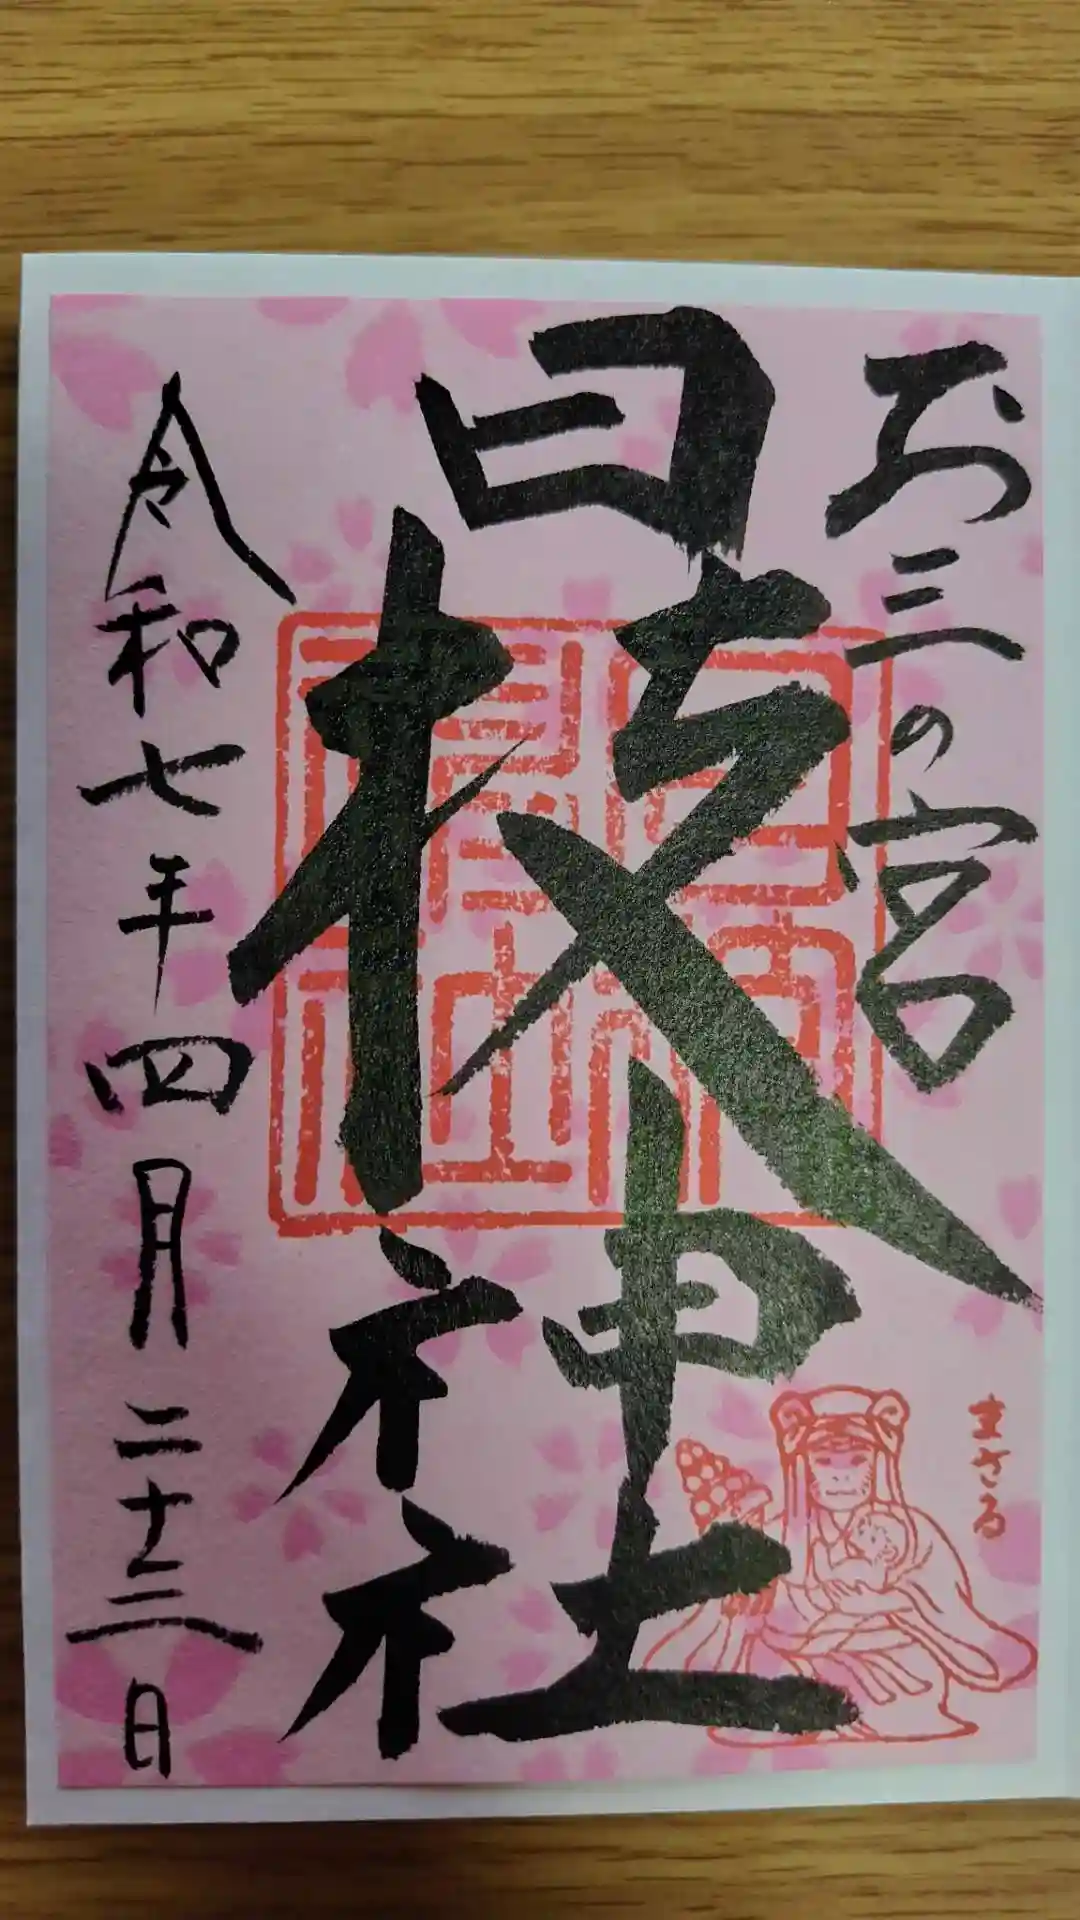 お三の宮
日枝神社
令和七年四月二十三日
まさる